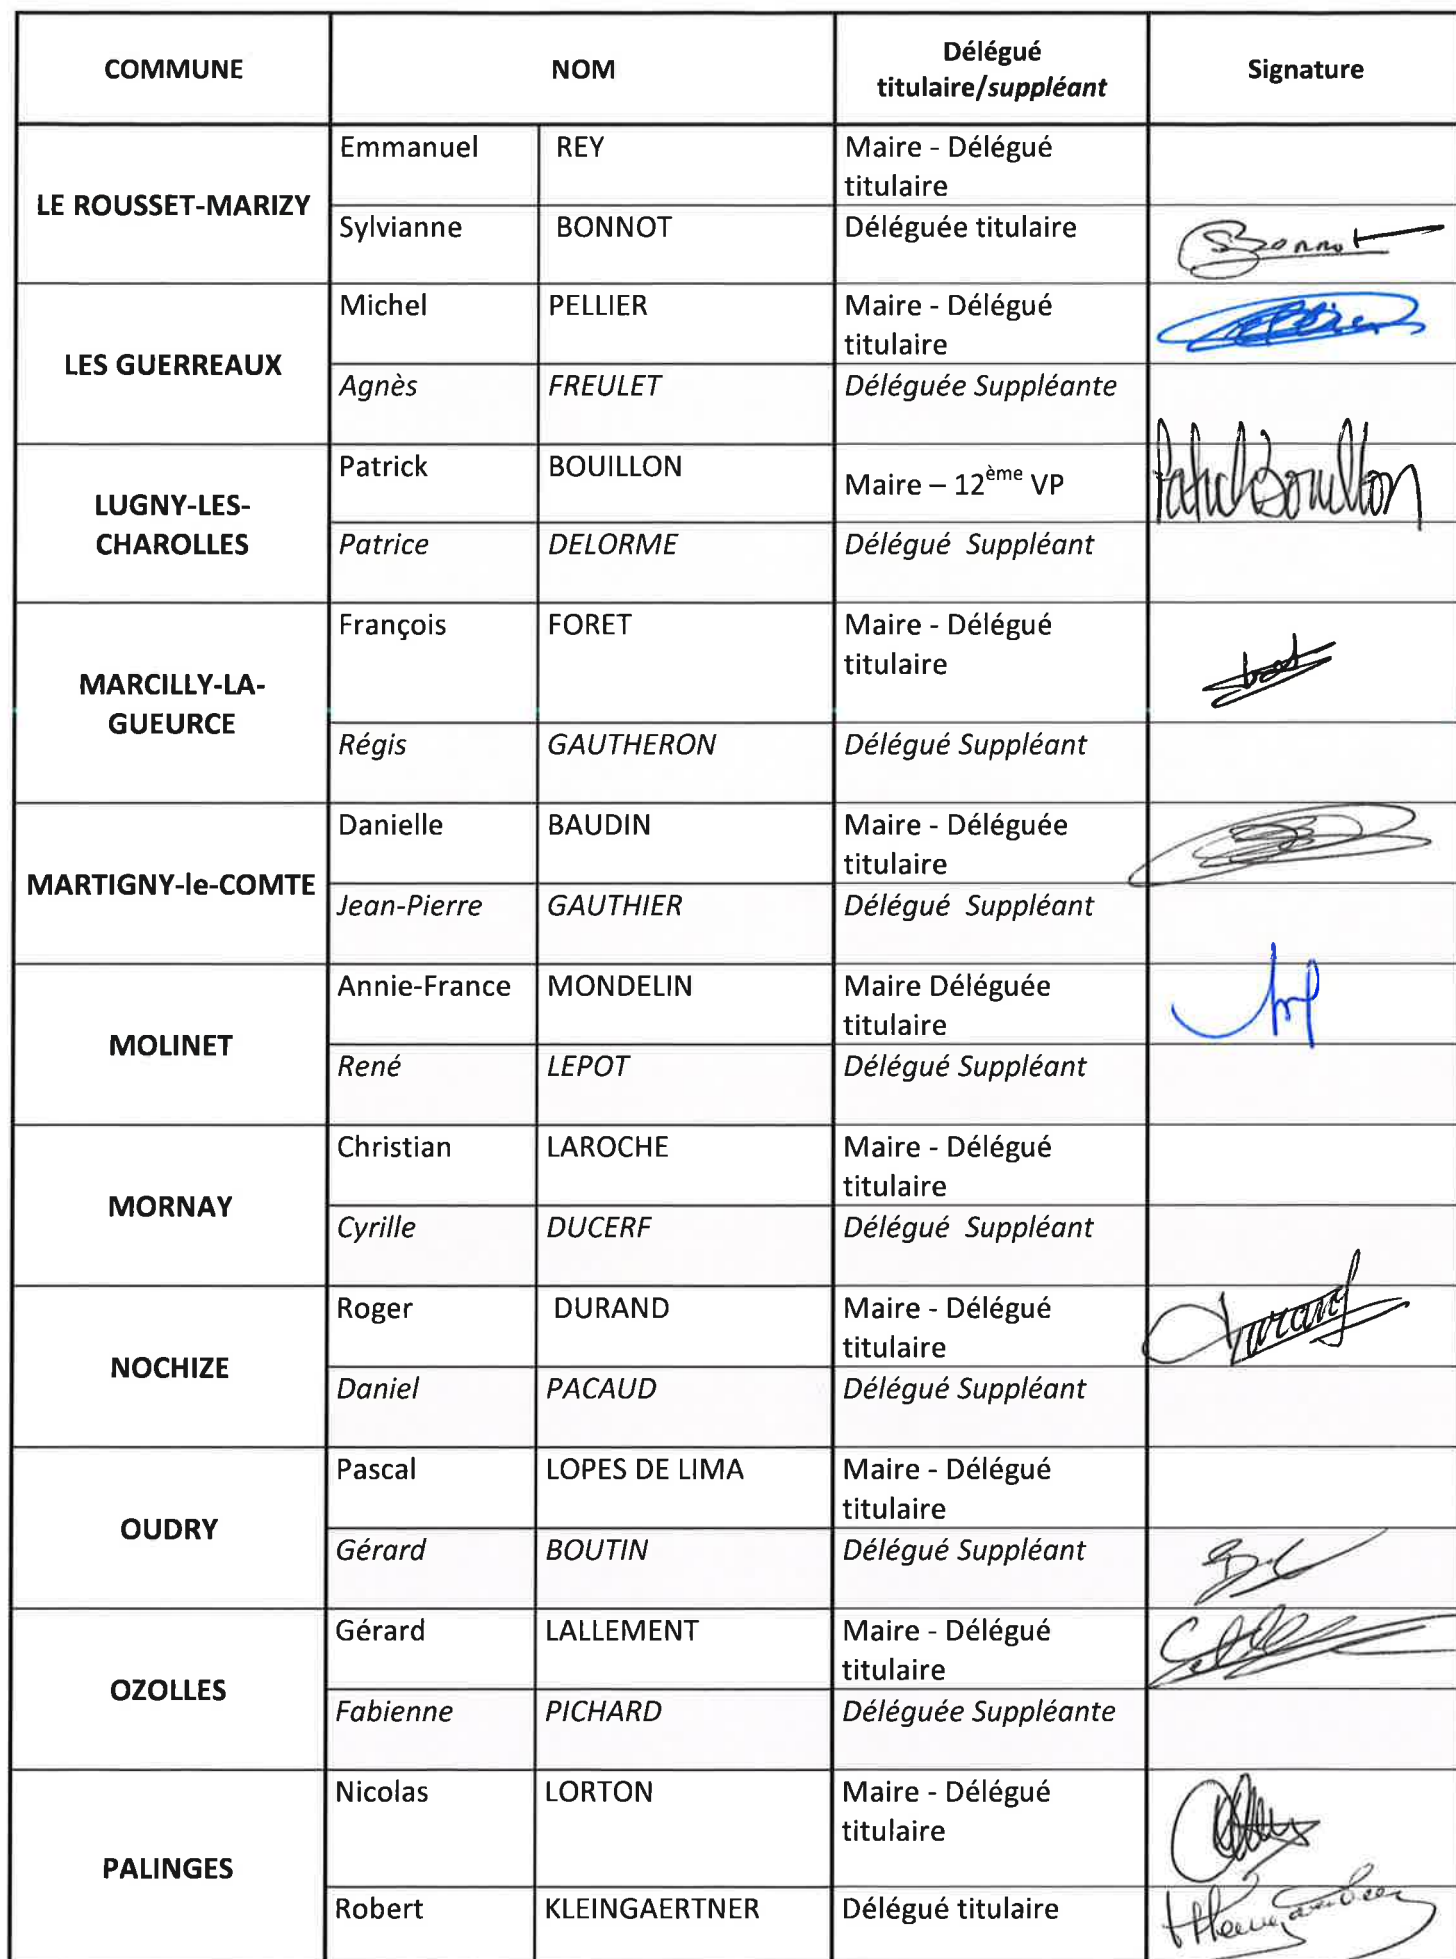 COMMUNE NOM Délégué titulaire/suppléant Signature
LE ROUSSET-MARIZY
Emmanuel REY Maire - Délégué
titulaire
Sylvianne BONNOT Déléguée titulaire SBonnot
LES GUERREAUX
Michel PELLIER Maire - Délégué
titulaire
Agnès FREULET Déléguée Suppléante
LUGNY-LES-
CHAROLLES
Patrick BOUILLON Maire – 12ème VP Patrick Bouillon
Patrice DELORME Délégué Suppléant
MARCILLY-LA-
GUEURCE
François FORET Maire - Délégué
titulaire
Régis GAUTHERON Délégué Suppléant
MARTIGNY-le-COMTE
Danielle BAUDIN Maire - Déléguée
titulaire
Jean-Pierre GAUTHIER Délégué Suppléant
MOLINET
Annie-France MONDELIN Maire Déléguée
titulaire
René LEPOT Délégué Suppléant
MORNAY
Christian LAROCHE Maire - Délégué
titulaire
Cyrille DUCERF Délégué Suppléant
NOCHIZE
Roger DURAND Maire - Délégué
titulaire
Daniel PACAUD Délégué Suppléant
OUDRY
Pascal LOPES DE LIMA Maire - Délégué
titulaire
Gérard BOUTIN Délégué Suppléant
OZOLLES
Gérard LALLEMENT Maire - Délégué
titulaire
Fabienne PICHARD Déléguée Suppléante
PALINGES
Nicolas LORTON Maire - Délégué
titulaire
Robert KLEINGAERTNER Délégué titulaire